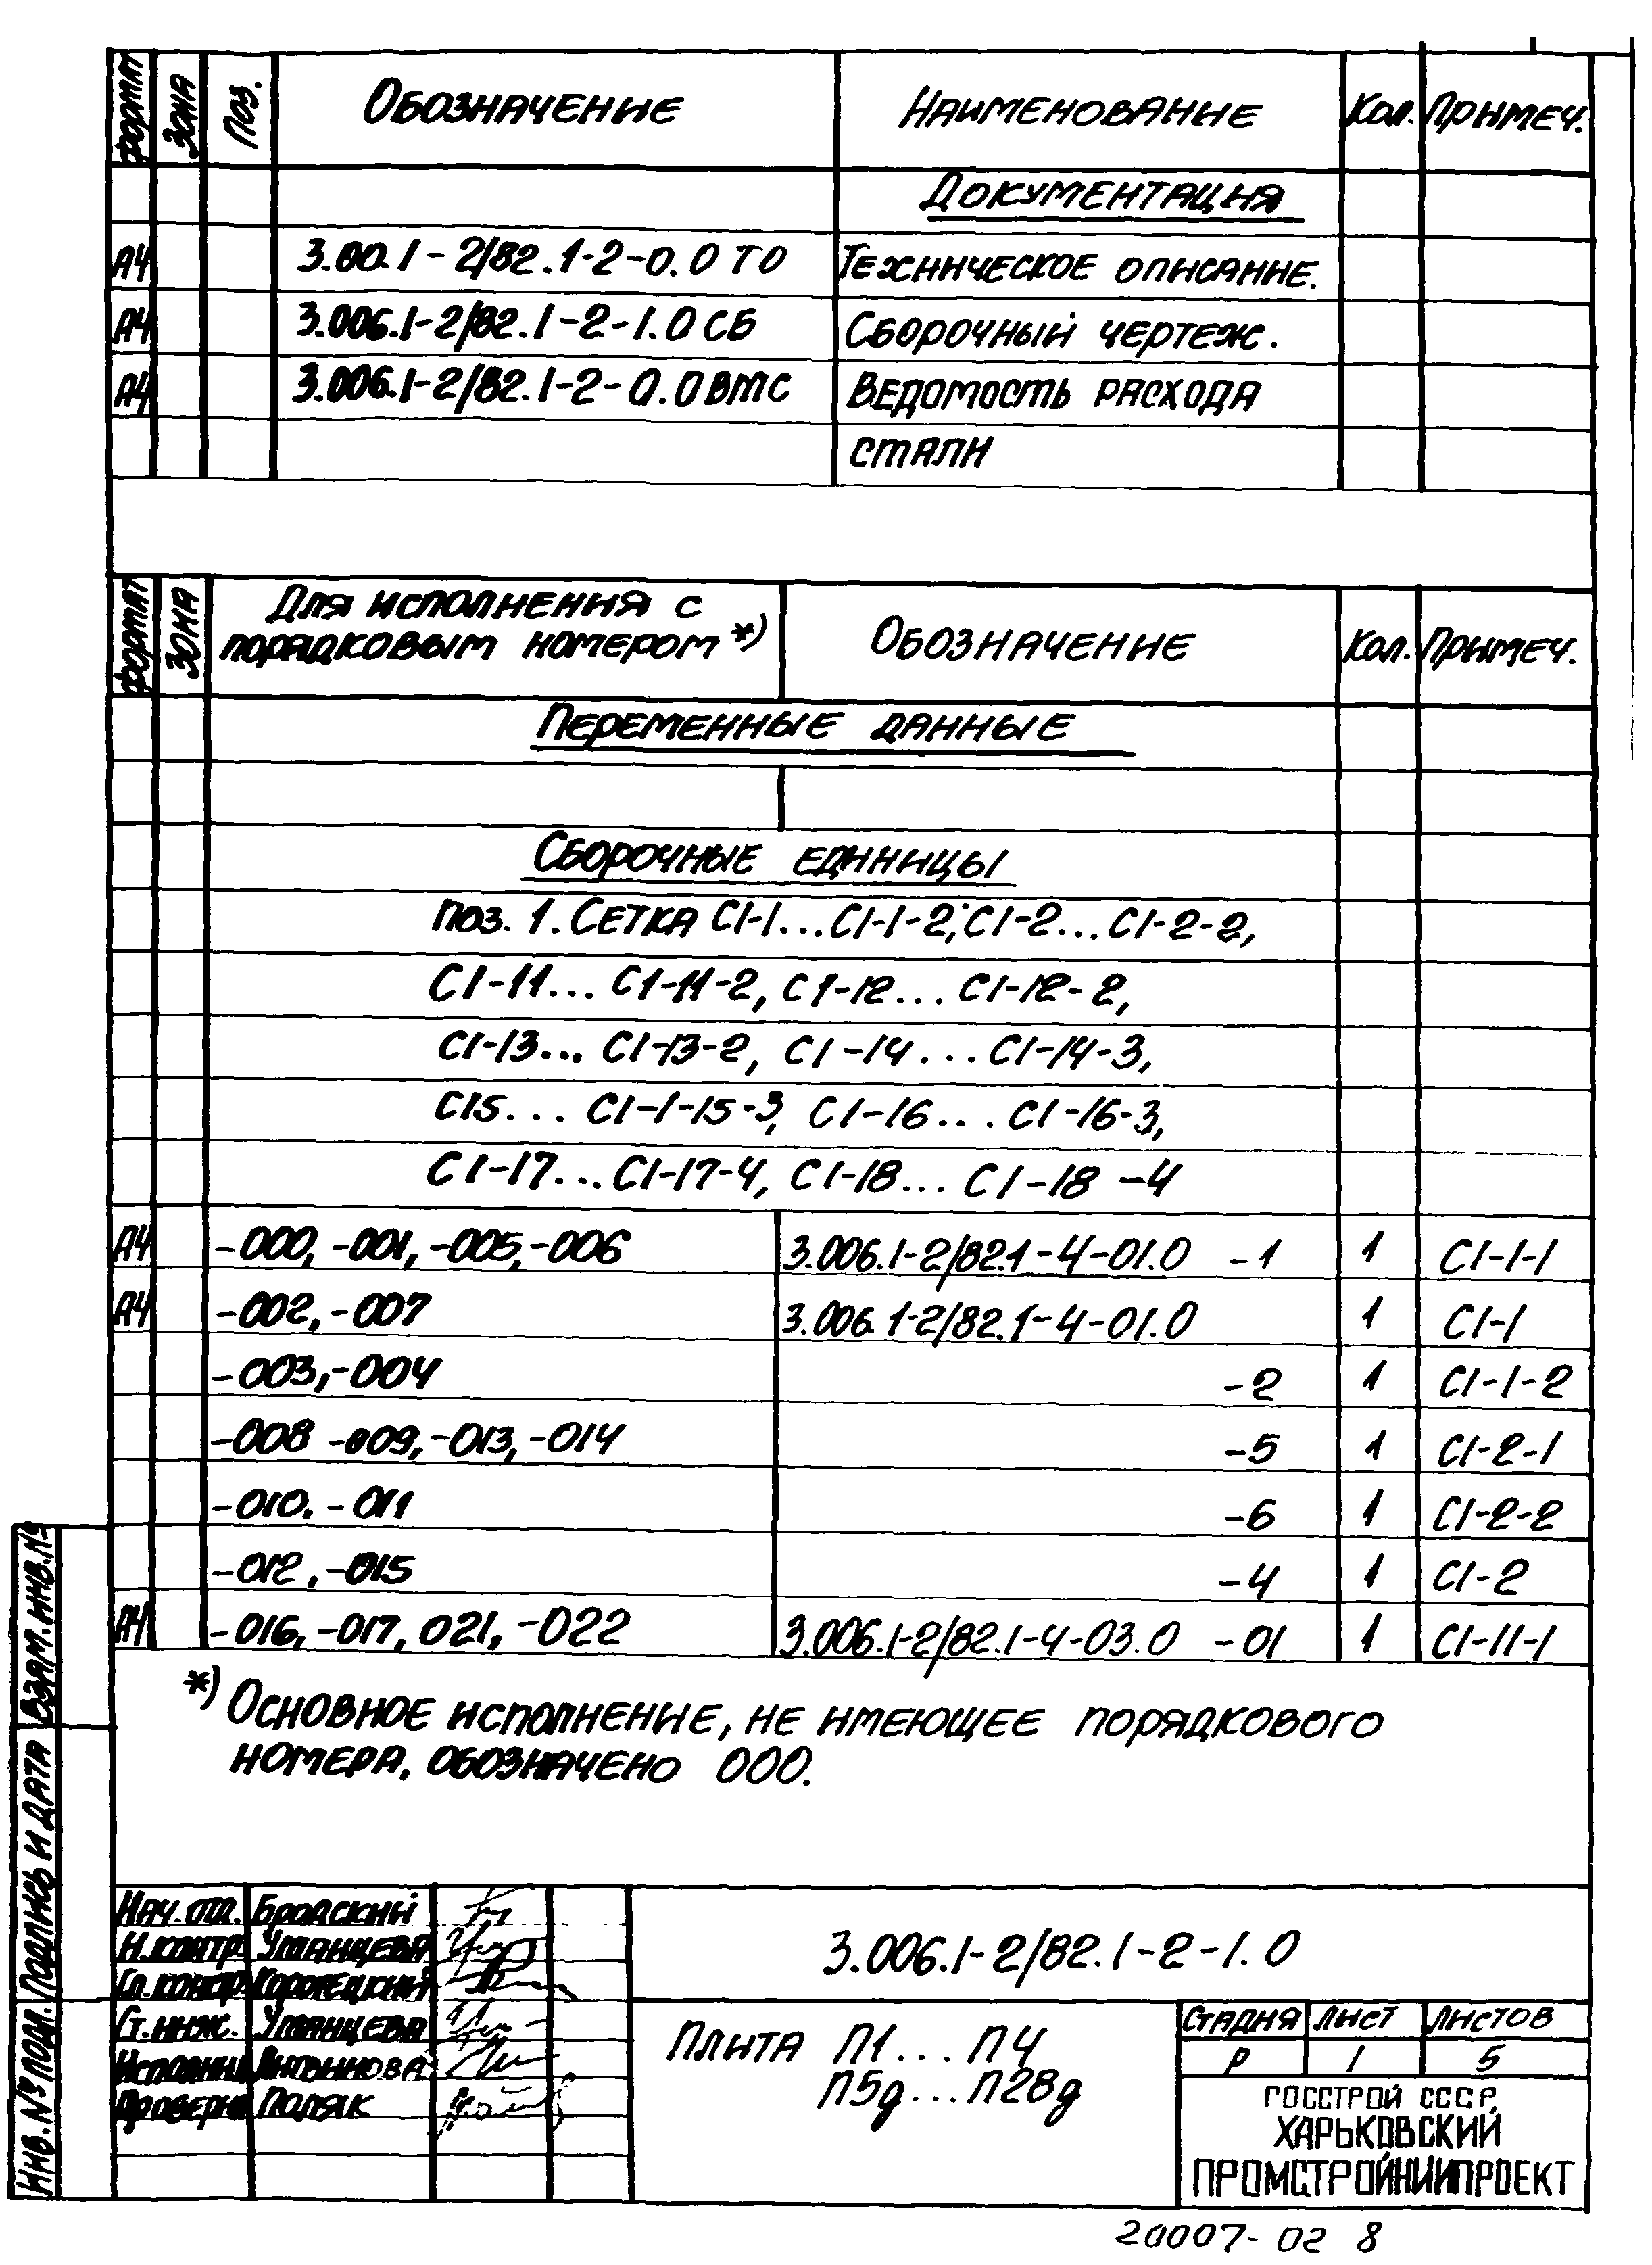 Формат Зона Поз. Обозначение Наименование Кол. Примеч.
Документация
А4 3.00.1-2/82.1-2-0.0 ТО Техническое описание.
А4 3.006.1-2/82.1-2-1.0 СБ Сборочный чертеж.
А4 3.006.1-2/82.1-2-0.0 ВМС Ведомость расхода
стали
Формат Зона Для исполнения с порядковым номером *) Обозначение Кол. Примеч.
Переменные данные
Сборочные единицы
поз. 1. Сетка С1-1...С1-1-2; С1-2...С1-2-2,
С1-11... С1-11-2, С1-12... С1-12-2,
С1-13... С1-13-2, С1-14... С1-14-3,
С15... С1-1-15-3, С1-16... С1-16-3,
С1-17...С1-17-4, С1-18... С1-18-4
А4 -000, -001, -005, -006 3.006.1-2/82.1-4-01.0 -1 1 С1-1-1
А4 -002, -007 3.006.1-2/82.1-4-01.0 1 С1-1
-003, -004 -2 1 С1-1-2
-008 -009, -013, -014 -5 1 С1-2-1
-010. -011 -6 1 С1-2-2
-012, -015 -4 1 С1-2
А4 -016, -017, 021, -022 3.006.1-2/82.1-4-03.0 -01 1 С1-11-1
*) Основное исполнение, не имеющее порядкового
номера, обозначено 000.
Инв. № подл. Подпись и дата Взам. инв. №
Нач. отд. Бродский
Н. контр. Уманцева
Гл. констр. Коротецкий
Ст. инж. Уманцева
Исполнил Антонова
Проверил Поляк
3.006.1-2/82.1-2-1.0
Плита П1...П4
П5д...П28д
Стадия Лист Листов
Р 1 5
ГОССТРОЙ СССР,
ХАРЬКОВСКИЙ
ПРОМСТРОЙНИИПРОЕКТ
20007-02 8